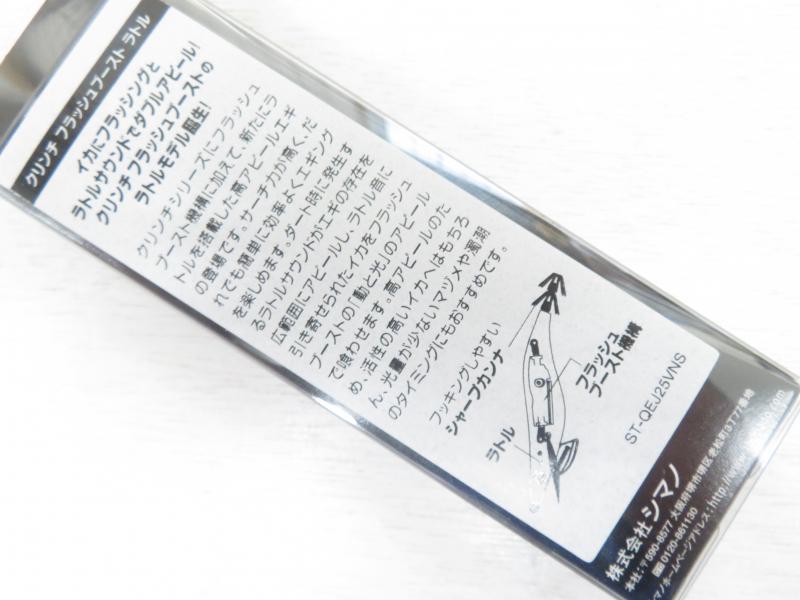 クリンチ フラッシュブースト ラトル
イカにフラッシングと
ラトルサウンドでダブルアピール!
クリンチ フラッシュブーストの
ラトルモデル誕生!
クリンチシリーズにフラッシュ
ブースト機構に加えて、新たにラ
トルを搭載した高アピールエギ
の登場です。サーチ力が高く、だ
れでも簡単に効率よくエギング
を楽しめます。ダート時に発生す
るラトルサウンドがエギの存在を
広範囲にアピールし、ラトル音に
引き寄せられたイカをフラッシュ
ブーストの「動と光」のアピール
で喰わせます。高アピールのた
め、活性の高いイカへはもちろ
ん、光量が少ないマヅメや濁潮
のタイミングにもおすすめです。
フッキングしやすい
シャープカンナ
フラッシュ
ブースト機構
ラトル
ST-QEJ25VNS
株式会社シマノ
本社:〒590-8577 大阪府堺市堺区老松町3丁77番地
0120-861130
シマノホームページアドレス:http://